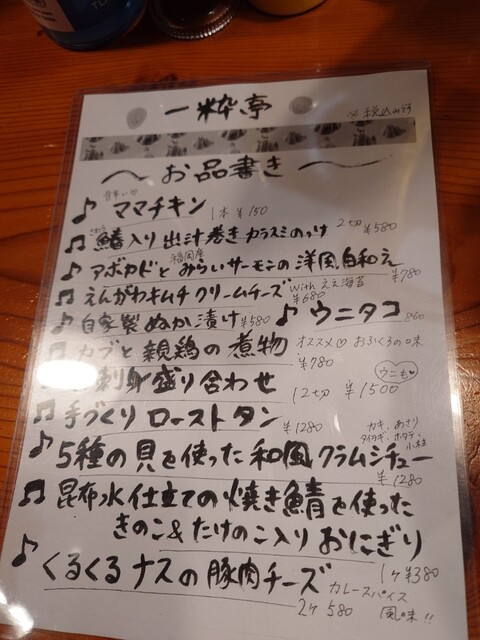 一粋亭
※税込みです
お品書き
甘辛い♡
ママチキン 1本 ¥150
鰆入り出汁巻き カラスミのっけ 2切 ¥580
福岡産
アボカドとみらいサーモンの洋風白和え ¥780
えんがわキムチクリームチーズ with ええ海苔 ¥680
自家製ぬか漬け ¥580 ♪ ウニタコ 860
カブと親鶏の煮物 オススメ♡ おふくろの味 ¥780
刺身盛り合わせ 12切 ¥1500 ウニも♥
手づくりローストタン ¥1280
カキ、あさり
タイラギ、ホタテ、
小柱
5種の貝を使った和風クラムシチュー ¥1280
昆布水仕立ての焼き鯖を使った
きのこ&たけのこ入りおにぎり
1ヶ ¥380
くるくるナスの豚肉チーズ
2ヶ 580
カレースパイス
風味!!